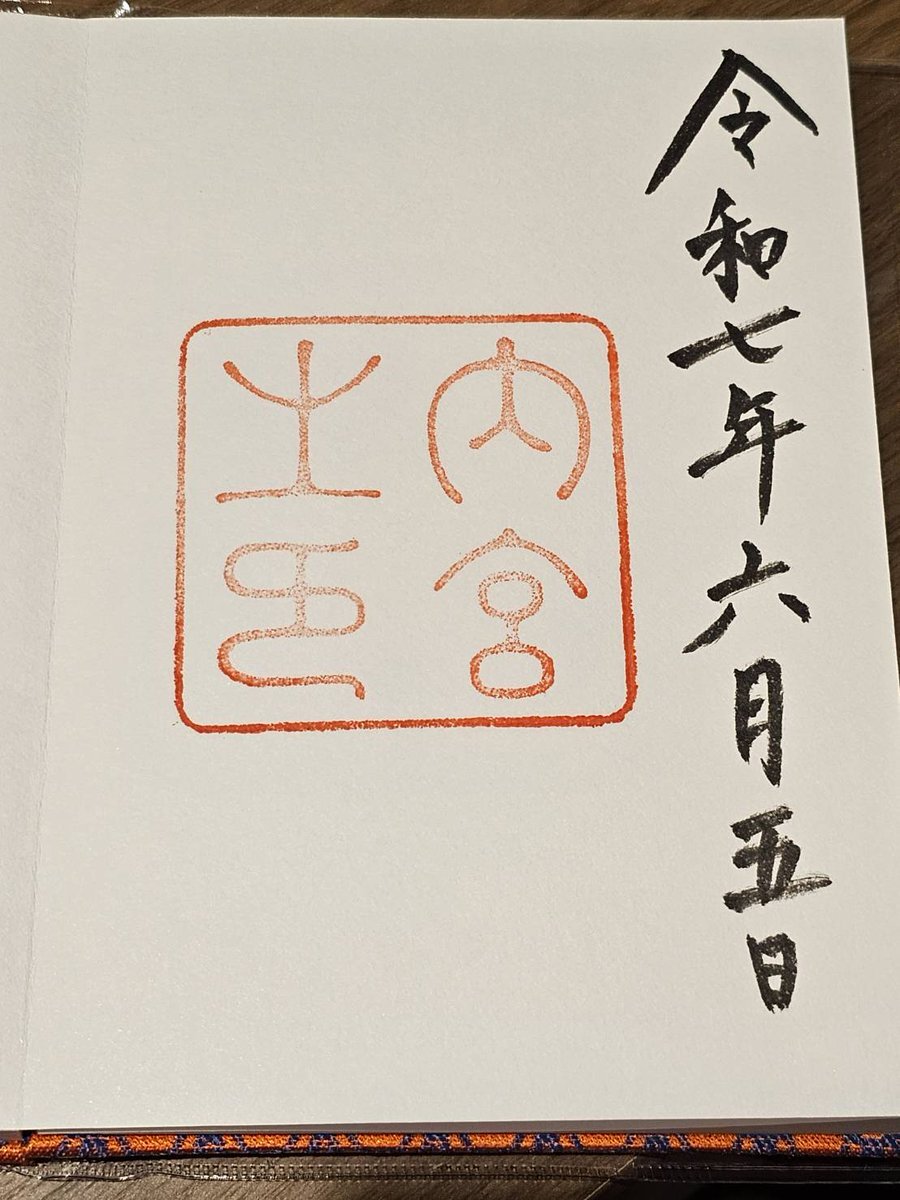 令和七年六月五日
内宮
之印